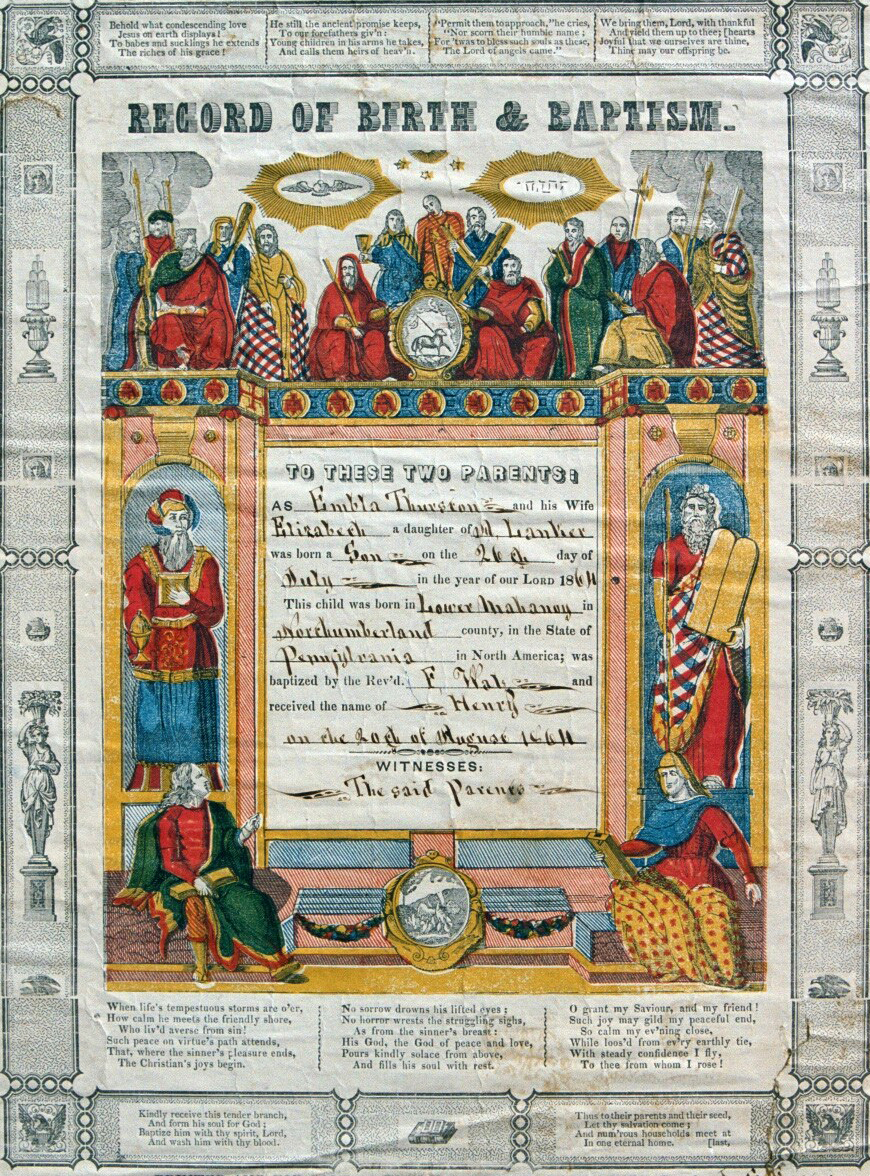 Behold what condescending love
Jesus on earth displays!
To babes and sucklings he extends
The riches of his grace!
He still the ancient promise keeps,
To our forefathers giv'n:
Young children in his arms he takes,
And calls them heirs of heav'n.
"Permit them to approach," he cries,
"Nor scorn their humble name;
For 'twas to bless such souls as these,
The Lord of angels came."
We bring them, Lord, with thankful
And yield them up to thee; [hearts
Joyful that we ourselves are thine,
Thine may our offspring be.
RECORD OF BIRTH & BAPTISM.
TO THESE TWO PARENTS:
AS Embla Thurston and his Wife
Elizabeth a daughter of Lanker
was born a Son on the 26th day of
July in the year of our LORD 1864
This child was born in Lower Mahanoy in
Northumberland county, in the State of
Pennsylvania in North America; was
baptized by the Rev'd. F. and
received the name of Henry
on the 20th of August 1864
WITNESSES:
The said Parents
When life's tempestuous storms are o'er,
How calm he meets the friendly shore,
Who liv'd averse from sin!
Such peace on virtue's path attends,
That, where the sinner's pleasure ends,
The Christian's joys begin.
No sorrow drowns his lifted eyes;
No horror wrests the struggling sighs,
As from the sinner's breast:
His God, the God of peace and love,
Pours kindly solace from above,
And fills his soul with rest.
O grant my Saviour, and my friend!
Such joy may gild my peaceful end,
So calm my ev'ning close,
While loos'd from ev'ry earthly tie,
With steady confidence I fly,
To thee from whom I rose!
Kindly receive this tender branch,
And form his soul for God;
Baptize him with thy spirit, Lord,
And wash him with thy blood.
Thus to their parents and their seed,
Let thy salvation come;
And num'rous households meet at
In one eternal home. [last,